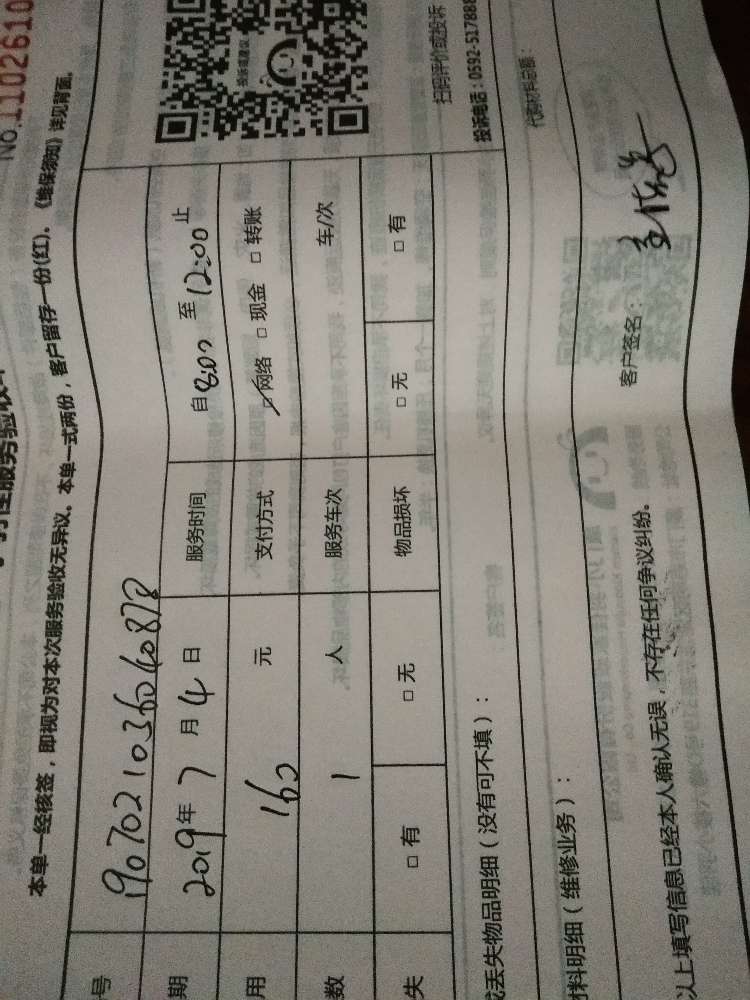 No.1102610
本单一经核签，即视为对本次服务验收无异议。本单一式两份，客户留存一份(红)、《维保须知》详见背面。
号 190702103604087
期 2019年7月4日 服务时间 自8:00至12:00止
用 160 元 支付方式 网络 □ 现金 □ 转账
数 1 人 服务车次 车/次
失 □ 有 □ 无 物品损坏 □ 无 □ 有
投诉或建议
扫码评价或投诉
丢失物品明细（没有可不填）：
投诉电话：0592-517888
料明细（维修业务）：
代购材料总额：
以上填写信息已经本人确认无误，不存在任何争议纠纷。
客户签名：